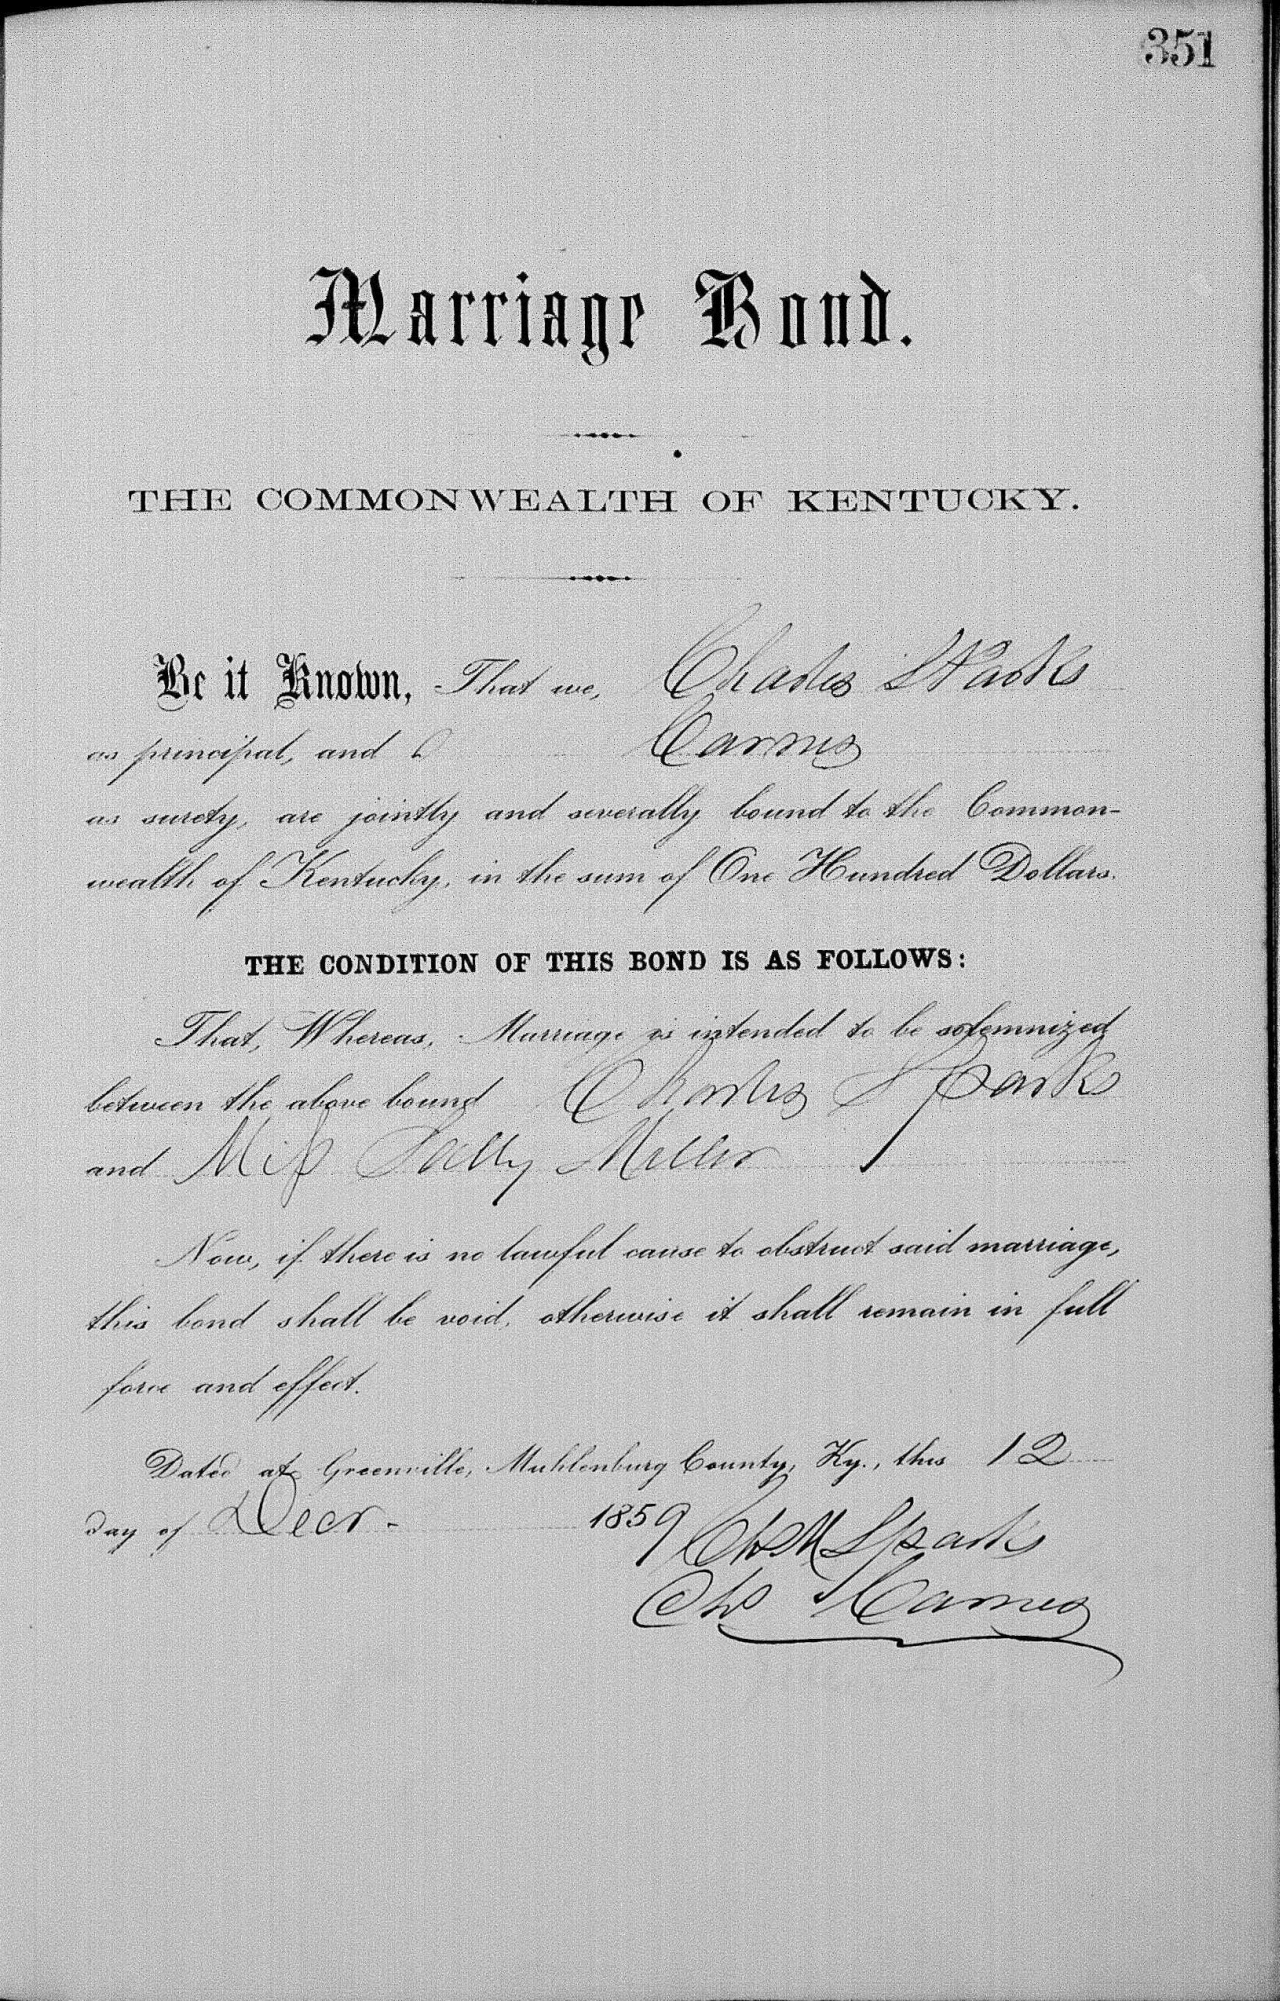 351
Marriage Bond.
THE COMMONWEALTH OF KENTUCKY.
Be it Known, That we, Charles Sparks
as principal, and C Carnes
as surety, are jointly and severally bound to the Common-
wealth of Kentucky, in the sum of One Hundred Dollars.
THE CONDITION OF THIS BOND IS AS FOLLOWS:
That, Whereas, Marriage is intended to be solemnized
between the above bound Charles Sparks
and Miss Sally Miller
Now, if there is no lawful cause to obstruct said marriage,
this bond shall be void, otherwise it shall remain in full
force and effect.
Dated at Greenville, Muhlenburg County, Ky., this 12
day of Decr - 1859
Sparks
Carnes